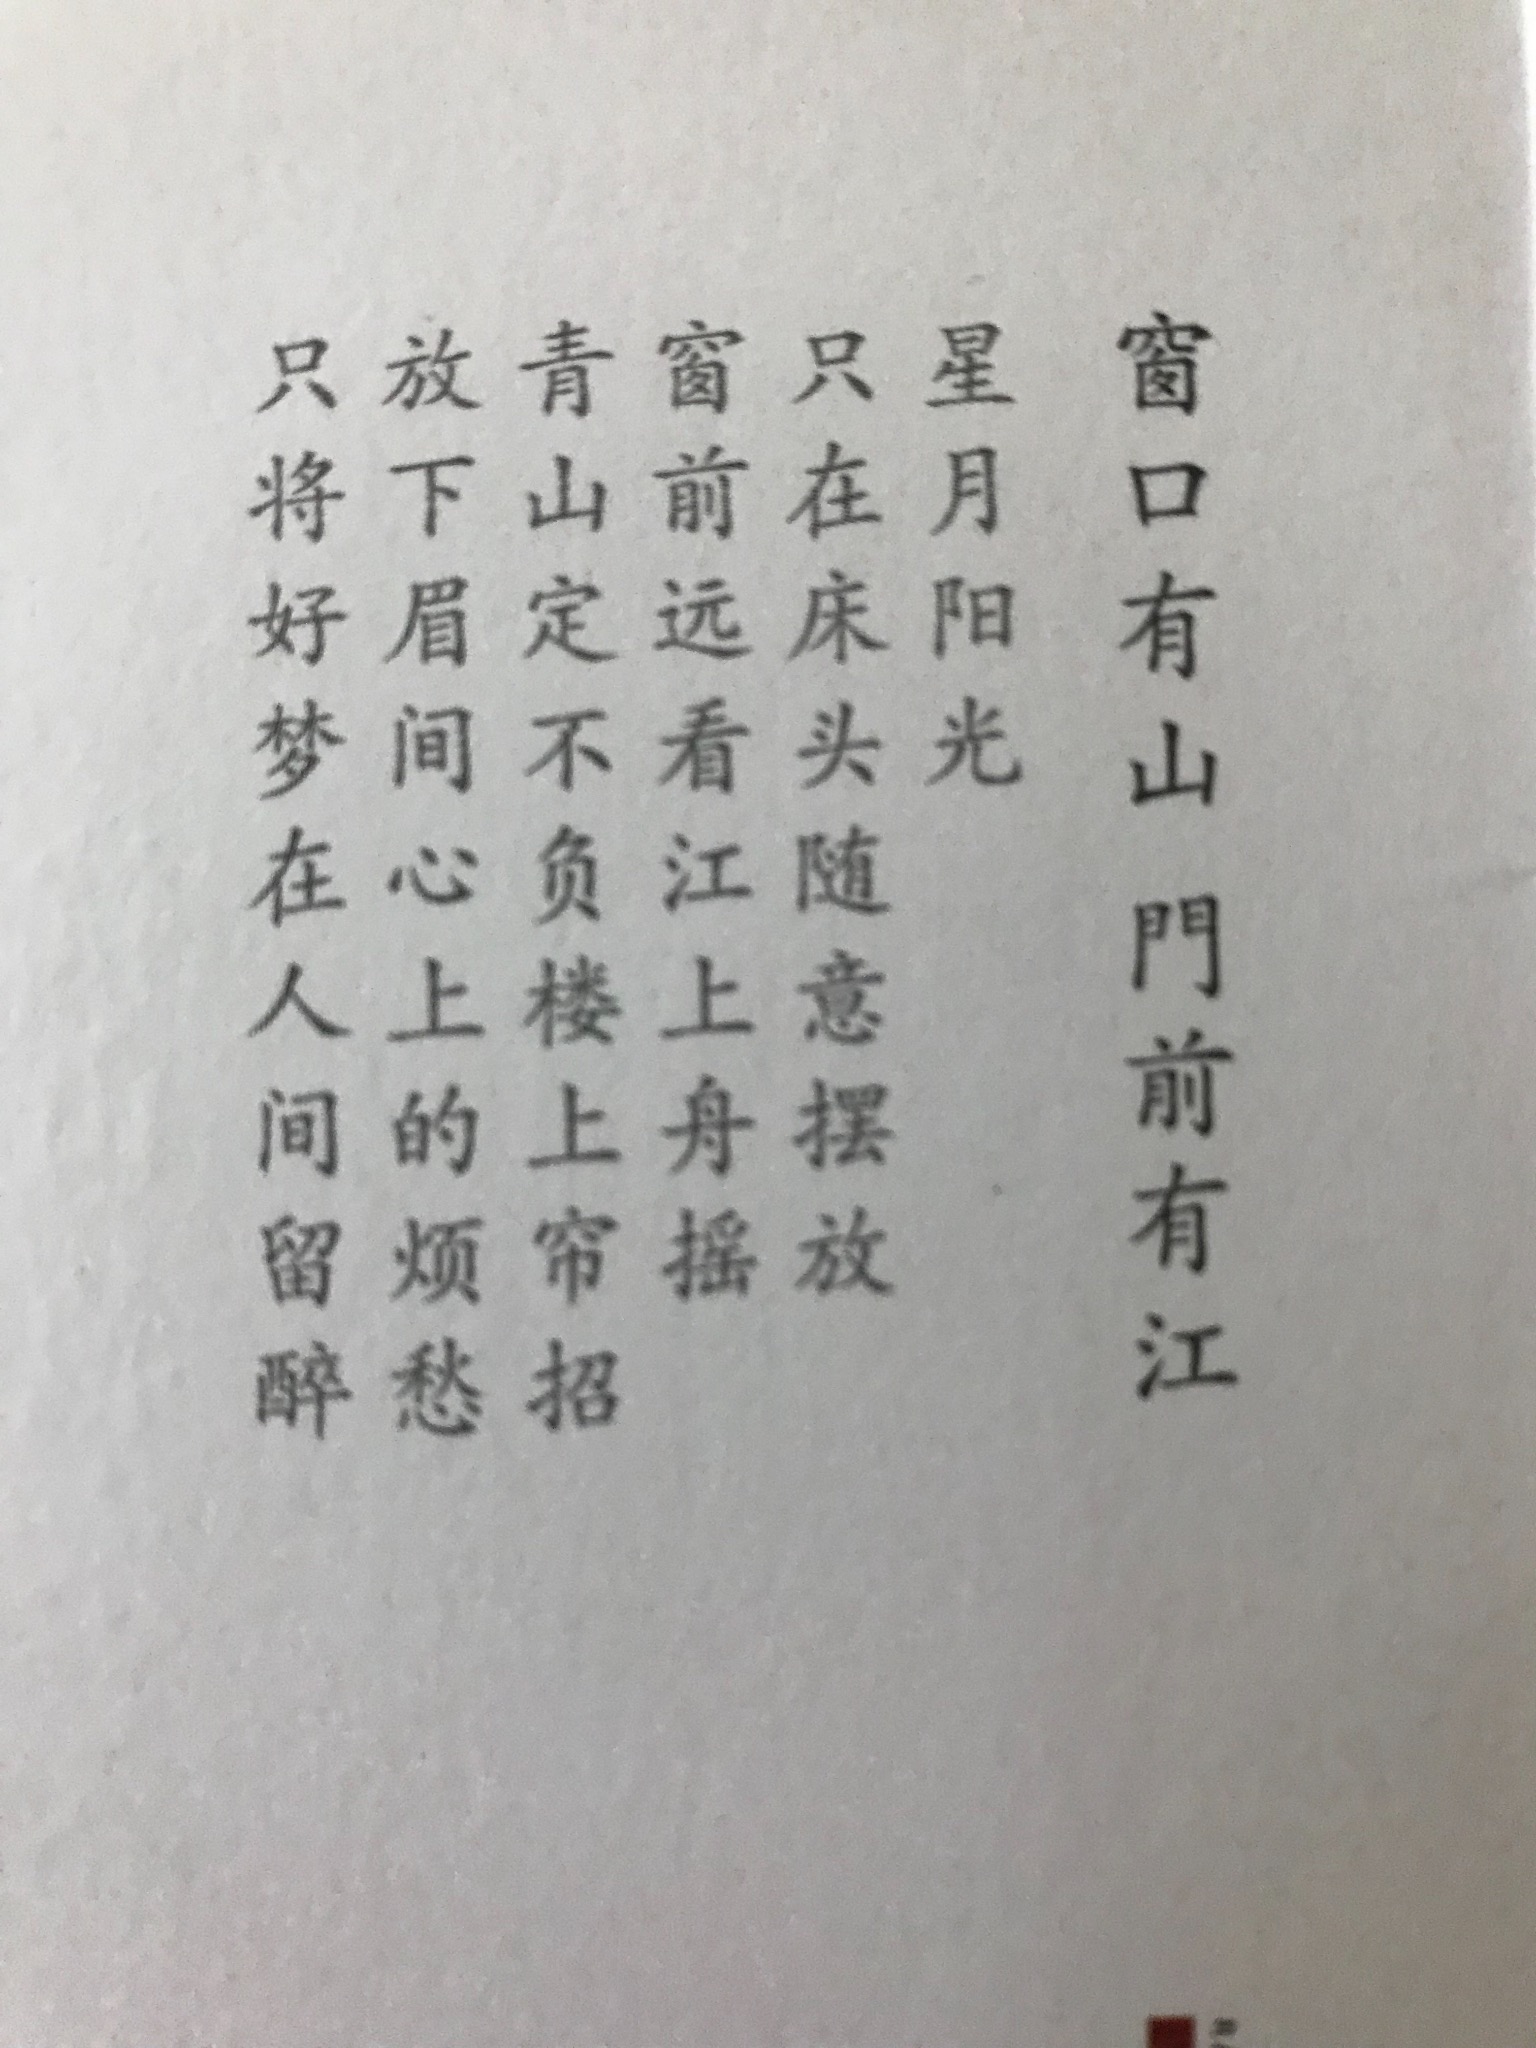 窗口有山 門前有江
星月阳光
只在床头随意摆放
窗前远看江上舟摇
青山定不负楼上帘招
放下眉间心上的烦愁
只将好梦在人间留醉